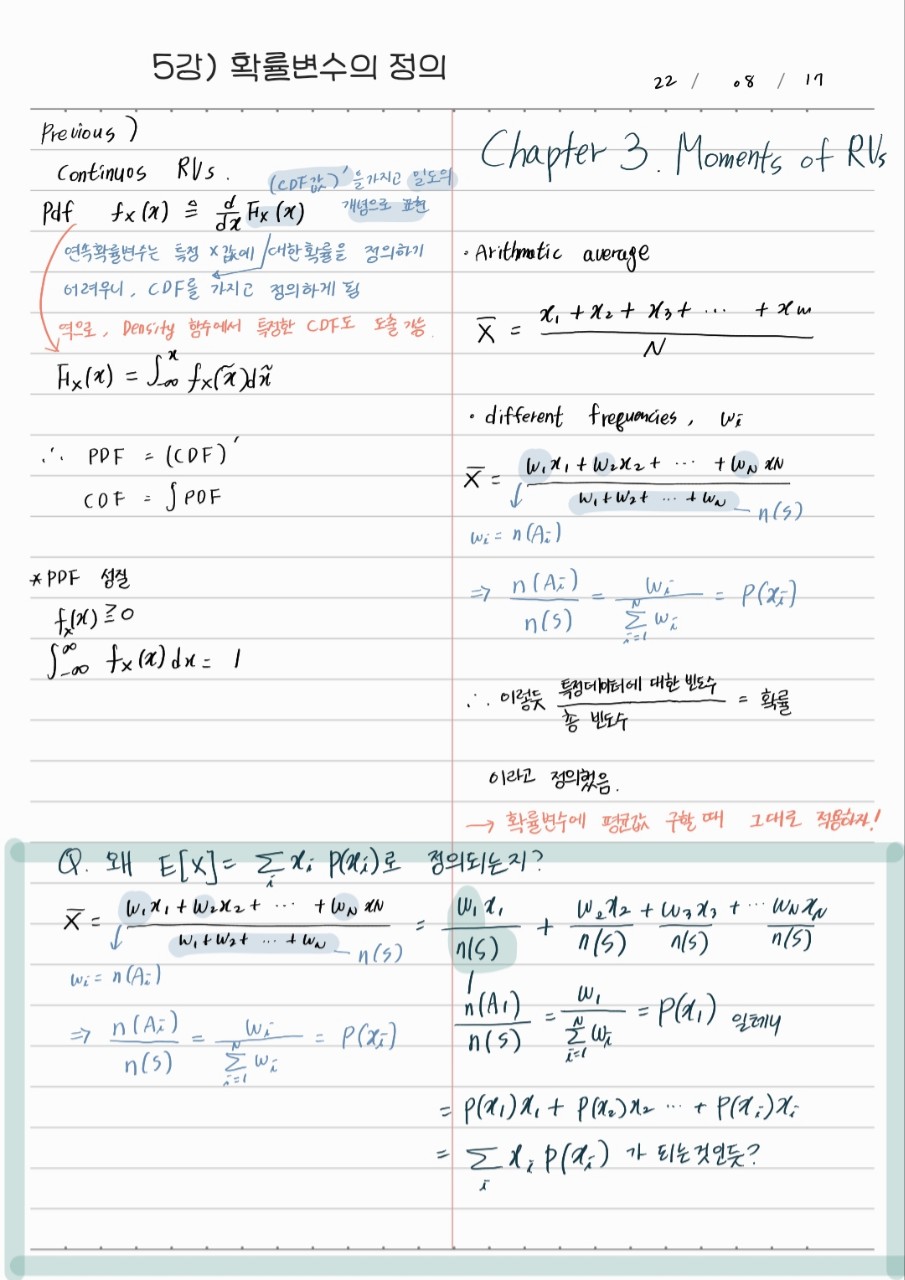 5강) 확률변수의 정의
22 / 08 / 17
Previous)
Continuos RVs.
(CDF값)′을가지고 밀도의
개념으로 표현
Pdf fx(x) ≜ d/dx Fx(x)
연속확률변수는 특정 x값에 대한확률을 정의하기
어려우니, CDF를 가지고 정의하게 됨
역으로, Density 함수에서 특정한 CDF도 도출 가능.
Fx(x) = ∫_{-∞}^{x} fx(x̃)dx̃
∴ PDF = (CDF)′
CDF = ∫PDF
*PDF 성질
fx(x) ≥ 0
∫_{-∞}^{∞} fx(x)dx = 1
Chapter 3. Moments of RVs
· Arithmatic average
X̄ = (x₁ + x₂ + x₃ + ⋯ + xₙ) / N
· different frequencies, wᵢ
X̄ = (w₁x₁ + w₂x₂ + ⋯ + w_N x_N) / (w₁ + w₂ + ⋯ + w_N) – n(S)
wᵢ = n(Aᵢ)
⇒ n(Aᵢ)/n(S) = wᵢ / Σ_{i=1}^{N} wᵢ = P(xᵢ)
∴ 이렇듯 특정데이터에 대한 빈도수 / 총 빈도수 = 확률
이라고 정의했음.
→ 확률변수에 평균값 구할때 그대로 적용하자!
Q. 왜 E[X] = Σ_i xᵢ P(xᵢ)로 정의되는지?
X̄ = (w₁x₁ + w₂x₂ + ⋯ + w_N x_N) / (w₁ + w₂ + ⋯ + w_N) – n(S) = w₁x₁/n(S) + w₂x₂/n(S) + w₃x₃/n(S) + ⋯ w_N x_N/n(S)
wᵢ = n(Aᵢ)
⇒ n(Aᵢ)/n(S) = wᵢ / Σ_{i=1}^{N} wᵢ = P(xᵢ)
n(A₁)/n(S) = w₁ / Σ_{i=1}^{N} wᵢ = P(x₁) 일테니
= P(x₁)x₁ + P(x₂)x₂ ⋯ + P(xᵢ)xᵢ
= Σ_i xᵢ P(xᵢ) 가 되는것인듯?